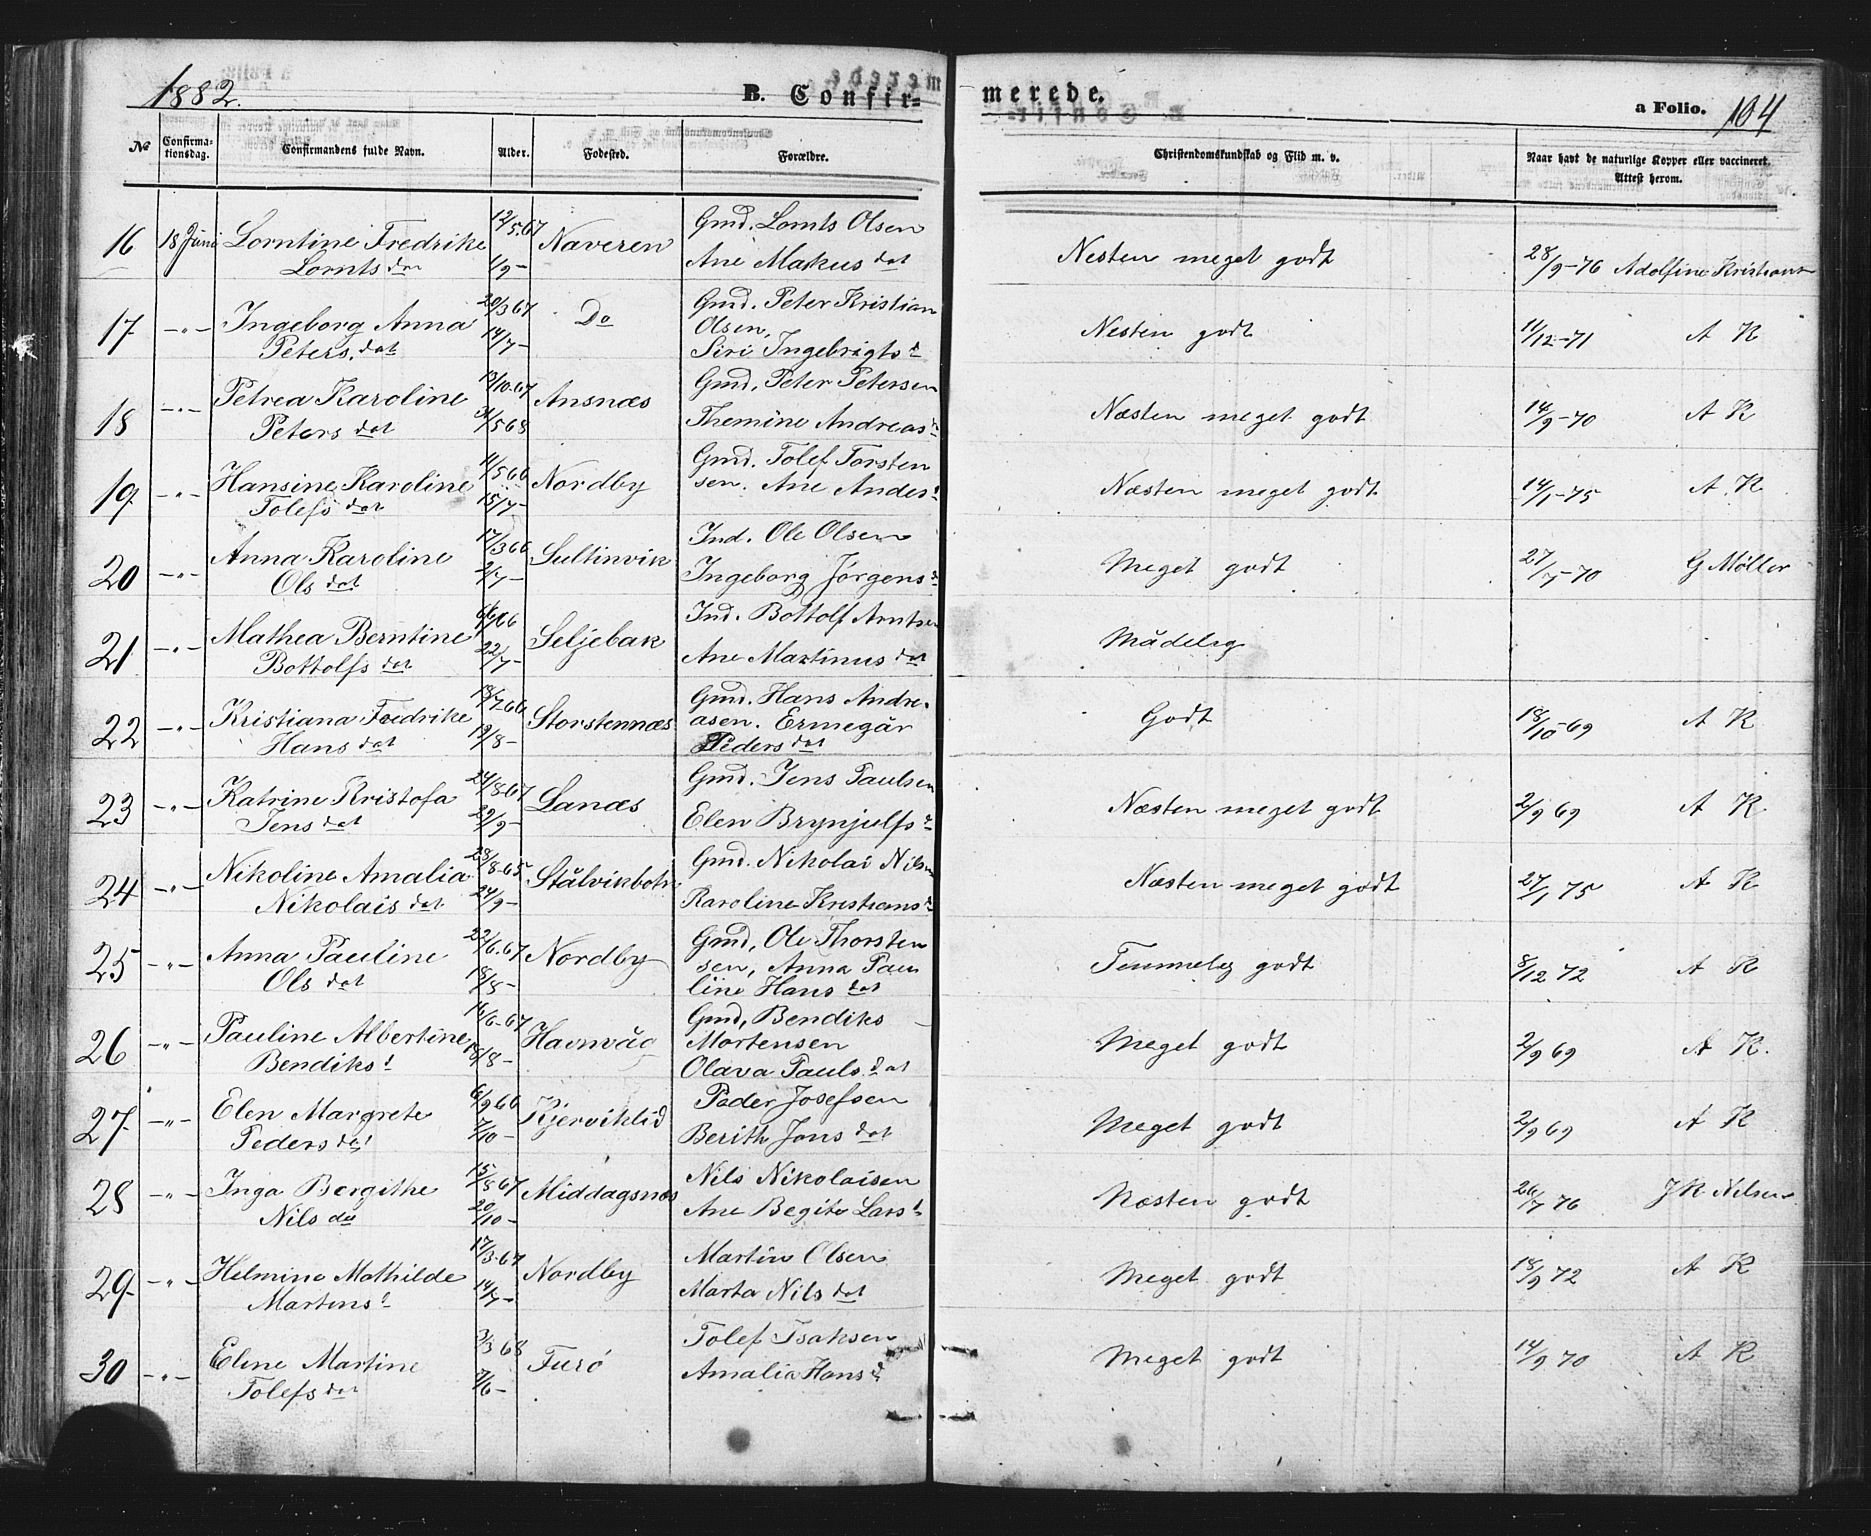 1882. B. Confirmerede. a Folio. 104
No Confirmationsdag. Confirmandens fulde Navn. Alder. Fødested. Forældre. Christendomskundskab og Flid m. v. Naar havt de naturlige Kopper eller vaccineret. Attest herom.
16 18 Juni Lorntine Fredrike 12/5.67 Naveren Gmd. Lornts Olsen Nesten meget godt 28/9-76 Adolfine Kristians
Lornts dat 1/9- Ane Makus dat
17 -"- Ingeborg Anna 20/3 67 Do Gmd. Peter Kristian Nesten godt 11/12-71 A K
Peters. dat 14/7- Olsen,
Siri Ingebrigts d
18 -"- Petrea Karoline 13/10.67 Ansnæs Gmd. Peter Petersen Næsten meget godt 14/9-70 A K
Peters dat 31/5 68 Themine Andreas d
19 -"- Hansine Karoline 11/5 66 Nordby Gmd. Tolef Torsten Næsten meget godt 14/1-75 A. K
Tolefs dat 15/7- sen. Ane Anders d
20 -"- Anna Karoline 17/3 66 Sultinvik Ind. Ole Olsen Meget godt 27/7-70 G Møller
Ols dat 2/7- Ingeborg Jørgens d
21 -"- Mathea Berntine Seljebak Ind. Bottolf Arntsen Mådelig
Bottolfs dat 22/7- Ane Martinus dat
22 -"- Kristiana Fredrike 18/7.66 Storstennæs Gmd. Hans Andre- Godt 18/10-69 A K
Hans dat 19/8- asen. Ermegår
Peders dat
23 -"- Katrine Kristofa 24/8.67 Lanæs Gmd. Jens Paulsen Næsten meget godt 2/9 69 A K
Jens dat 29/9- Elen Brynjulfs d
24 -"- Nikoline Amalia 28/8-65 Stålvikbotn Gmd. Nikolai Nilsen Næsten meget godt 27/1 75 A K
Nikolais dat 24/9- Karoline Kristians d
25 -"- Anna Pauline 22/6.67 Nordby Gmd, Ole Thorsten Temmelig godt 8/12 72 A K
Ols dat 18/8- sen, Anna Pau
line Hans dat
26 -"- Pauline Albertine 16/6-67 Havnvåg Gmd, Bendiks Meget godt 2/9 69 A K.
Bendiks d 18/8- Mortensen
Olava Pauls. dat
27 -"- Elen Margrete 6/9 66 Kjerviklid Peder Josefsen Meget godt 2/9 69 A K
Peders dat 7/10- Berith Jons dat
28 -"- Inga Bergithe 15/8 67 Middagsnæs Nils Nikolaisen Næsten godt 26/7 76 J K Nilsen
Nils da 20/10- Ane Begite Lars d
29 -"- Helmine Mathilde 17/3-67 Nordby Martin Olsen Meget godt 18/9 72 A K
Martins d 14/7- Marta Nils dat
30 -"- Eline Martine 3/3 68 Furö Tolef Isaksen Meget godt 14/9 70 A K
Tolefs dat 7/6- Amalia Hans d